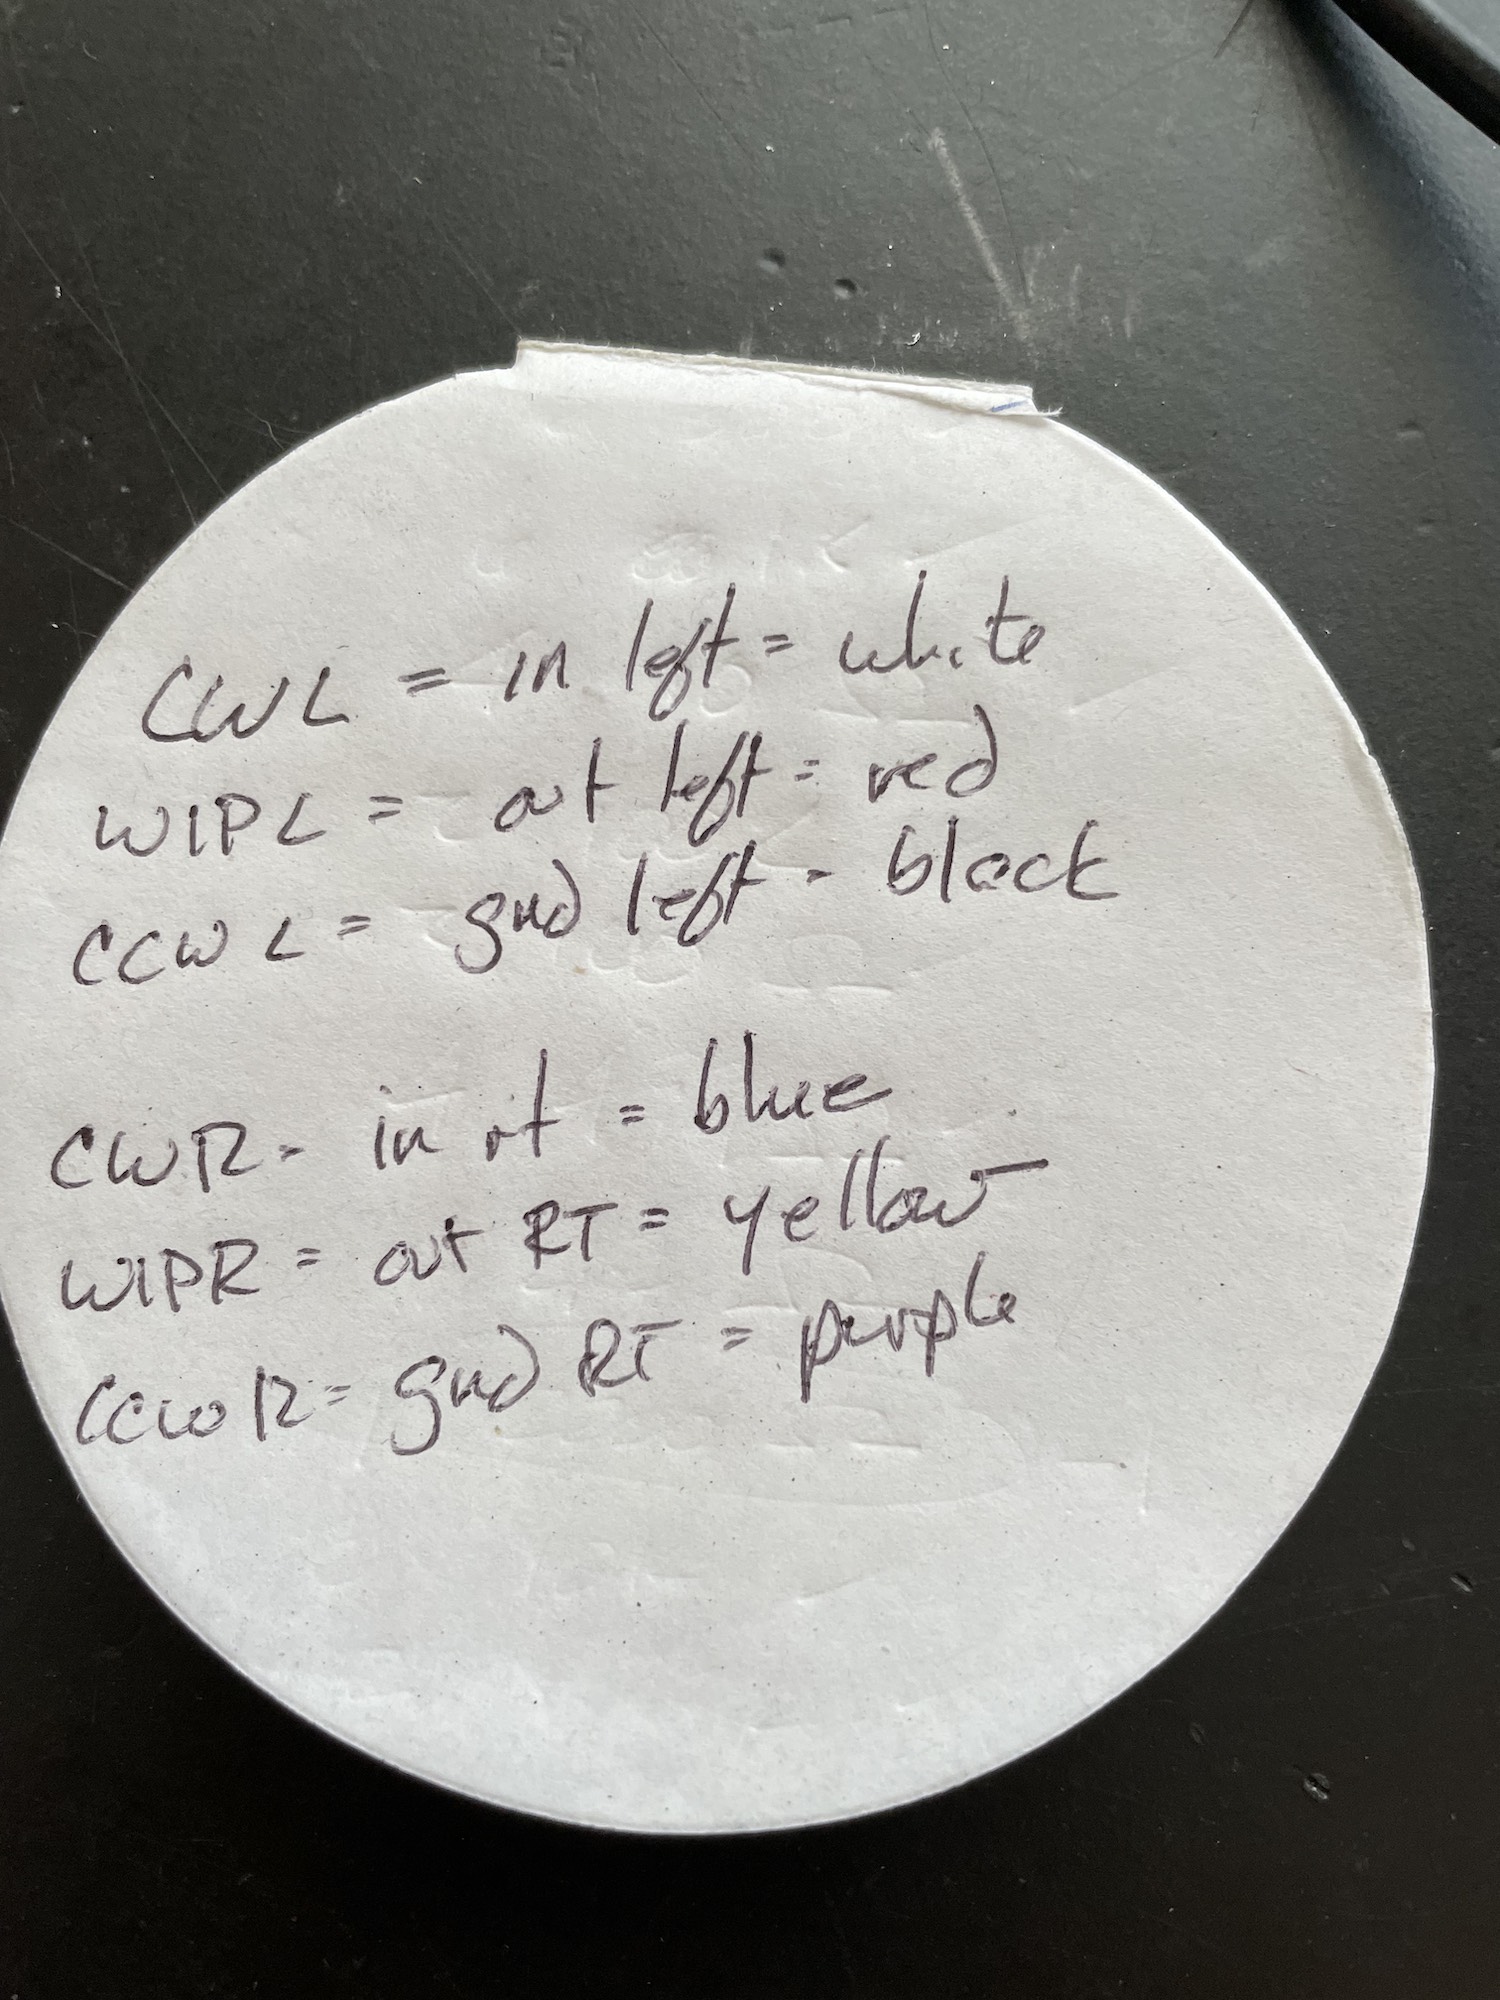 CWL = in left = white
WIPL = out left = red
CCWL = gnd left - black
CWR - in rt = blue
WIPR = out RT = yellow
CCWR = gnd RT = purple